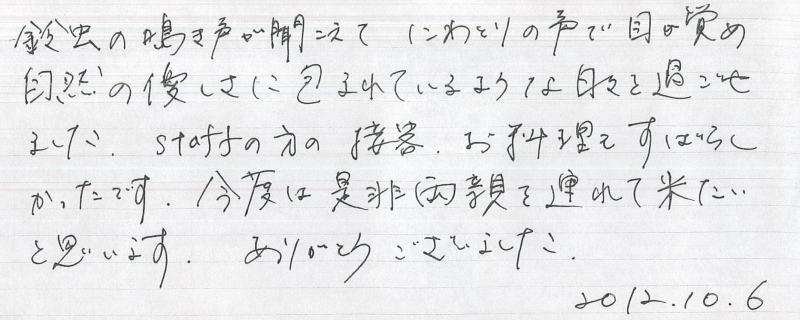 鈴虫の鳴き声が聞こえて にわとりの声で目が覚め
自然の優しさに包まれているような日々を過ごせ
ました. staffの方の接客. お料理もすばらし
かったです. 今度は是非両親を連れて来たい
と思います. ありがとうございました.
2012.10.6